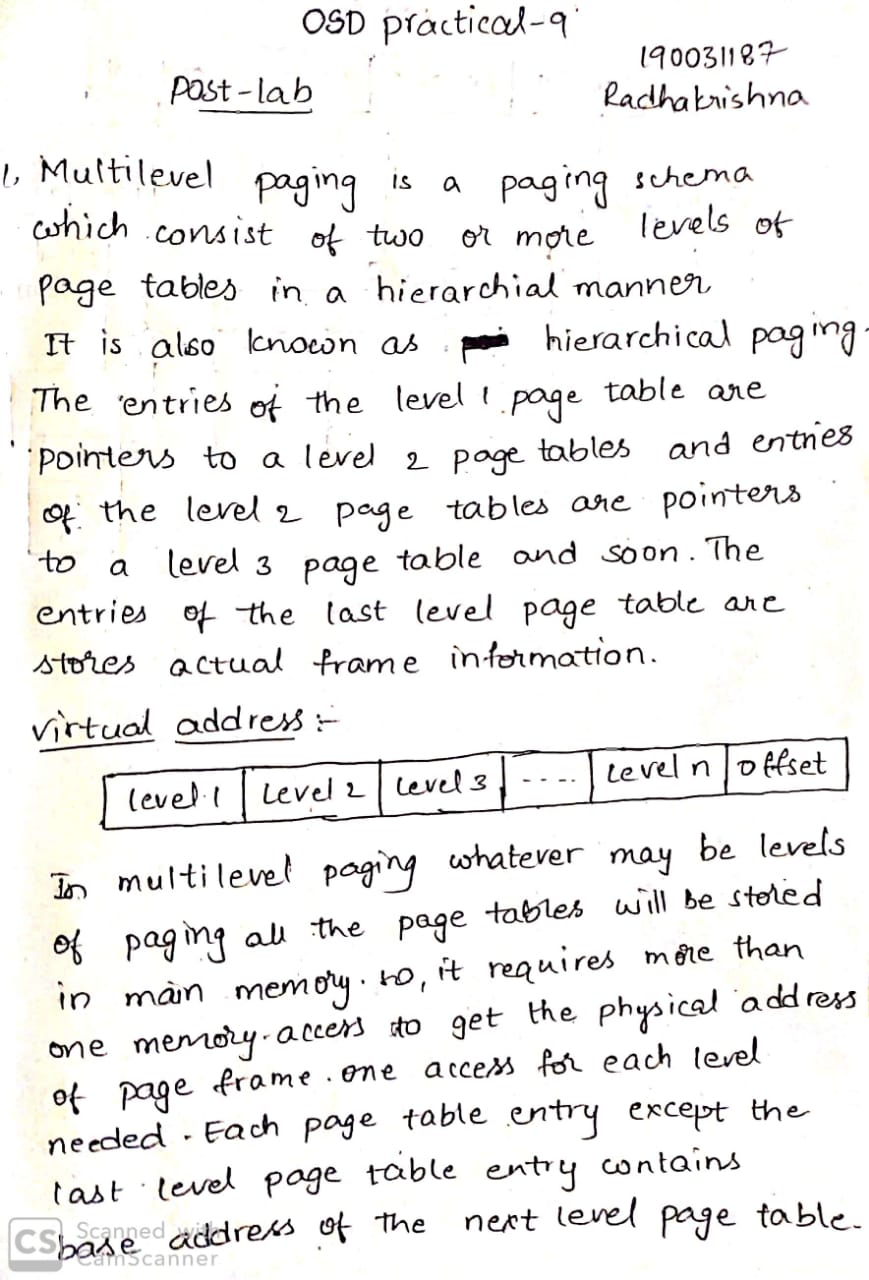 OSD practical-9
190031187
Post-lab
Radhakrishna
1, Multilevel paging is a paging schema
which consist of two or more levels of
page tables in a hierarchial manner
It is also known as hierarchical paging.
The entries of the level 1 page table are
pointers to a level 2 page tables and entries
of the level 2 page tables are pointers
to a level 3 page table and soon. The
entries of the last level page table are
stores actual frame information.
virtual address :-
level 1 | Level 2 | Level 3 | ---- | Level n | offset
In multilevel paging whatever may be levels
of paging all the page tables will be stored
in main memory. so, it requires more than
one memory access to get the physical address
of page frame. one access for each level
needed. Each page table entry except the
last level page table entry contains
base address of the next level page table.
CS Scanned with
CamScanner